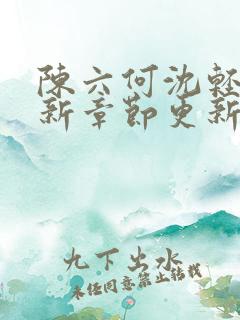 陳六何沈輕
新章節更新
九下出水
未經同意禁止轉載